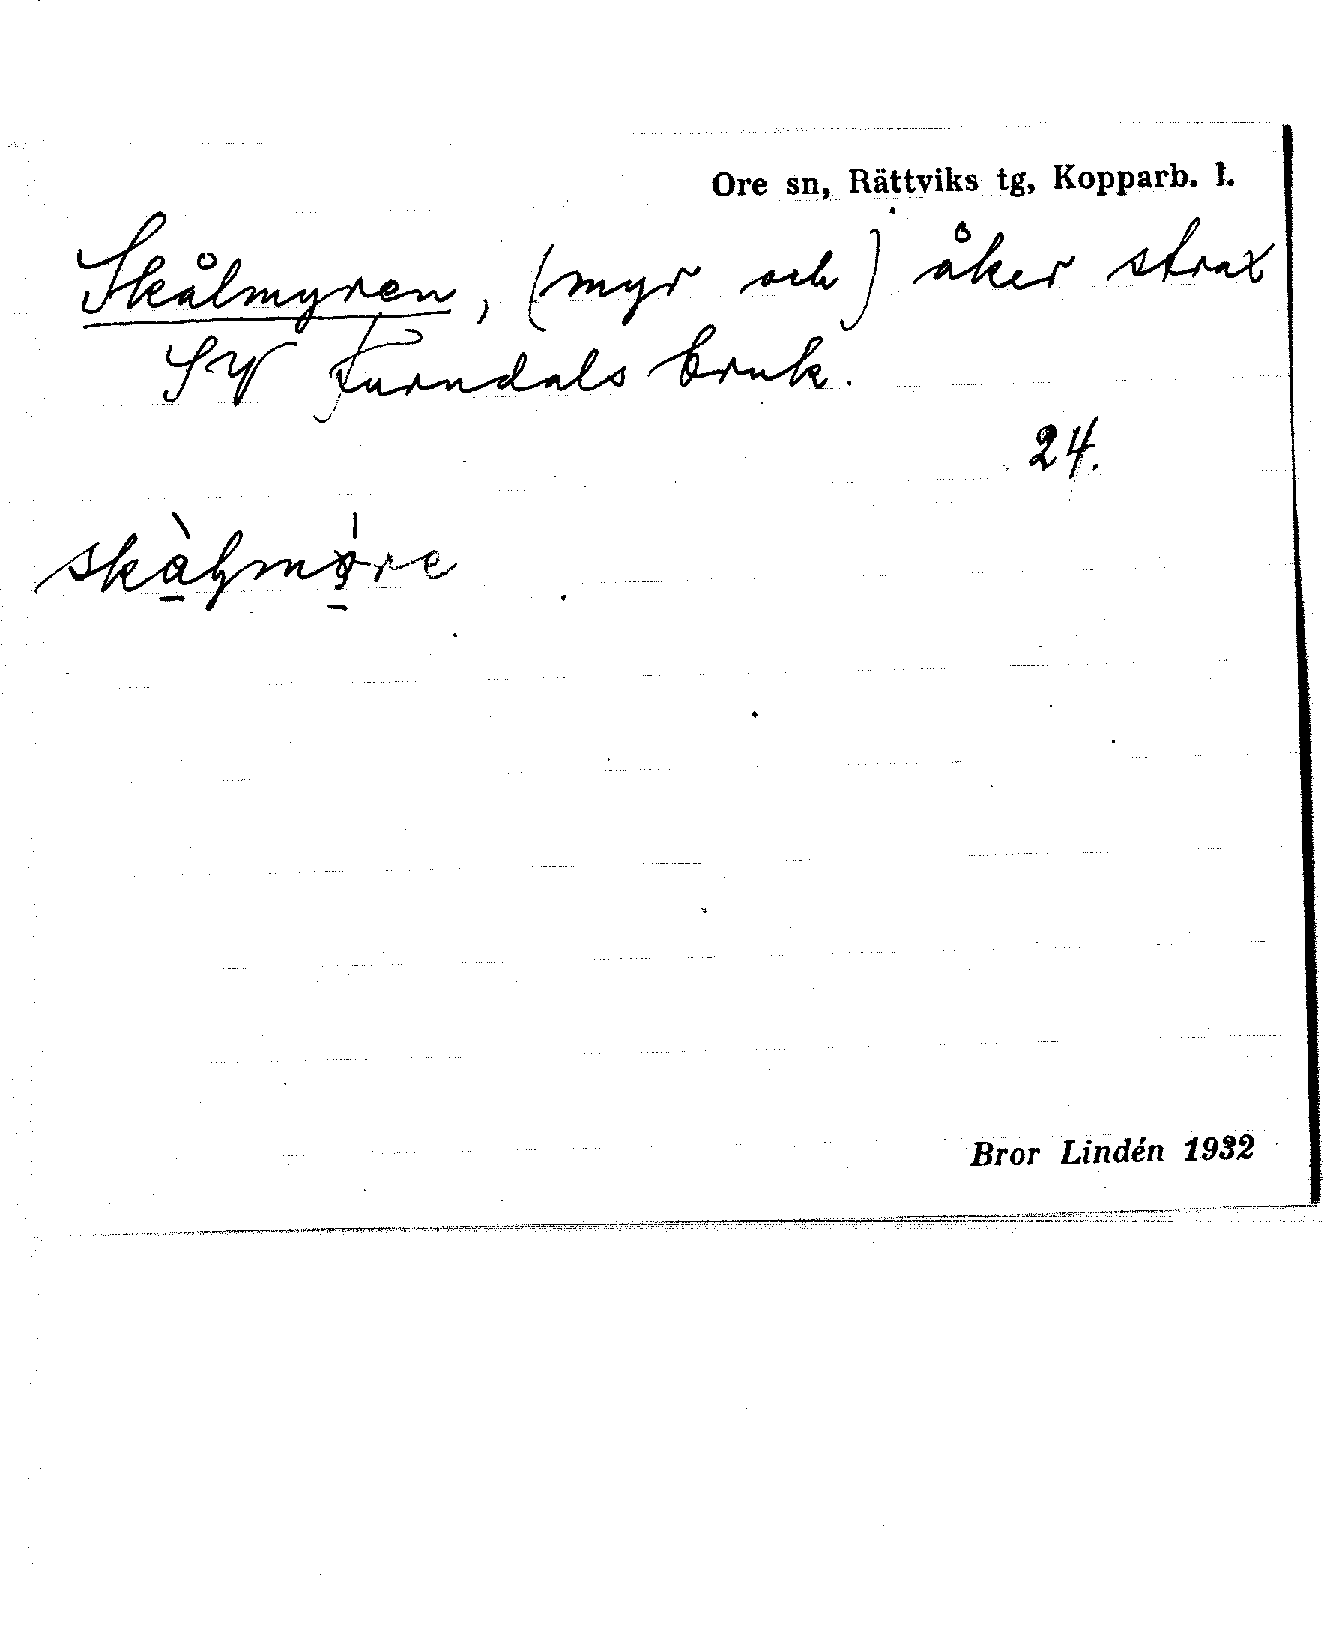 Ore sn, Rättviks tg, Kopparb. l.
Skålmyren, (myr och) åker strax
SV Furudals bruk.
24.
skàḷmø̀re
Bror Lindén 1932